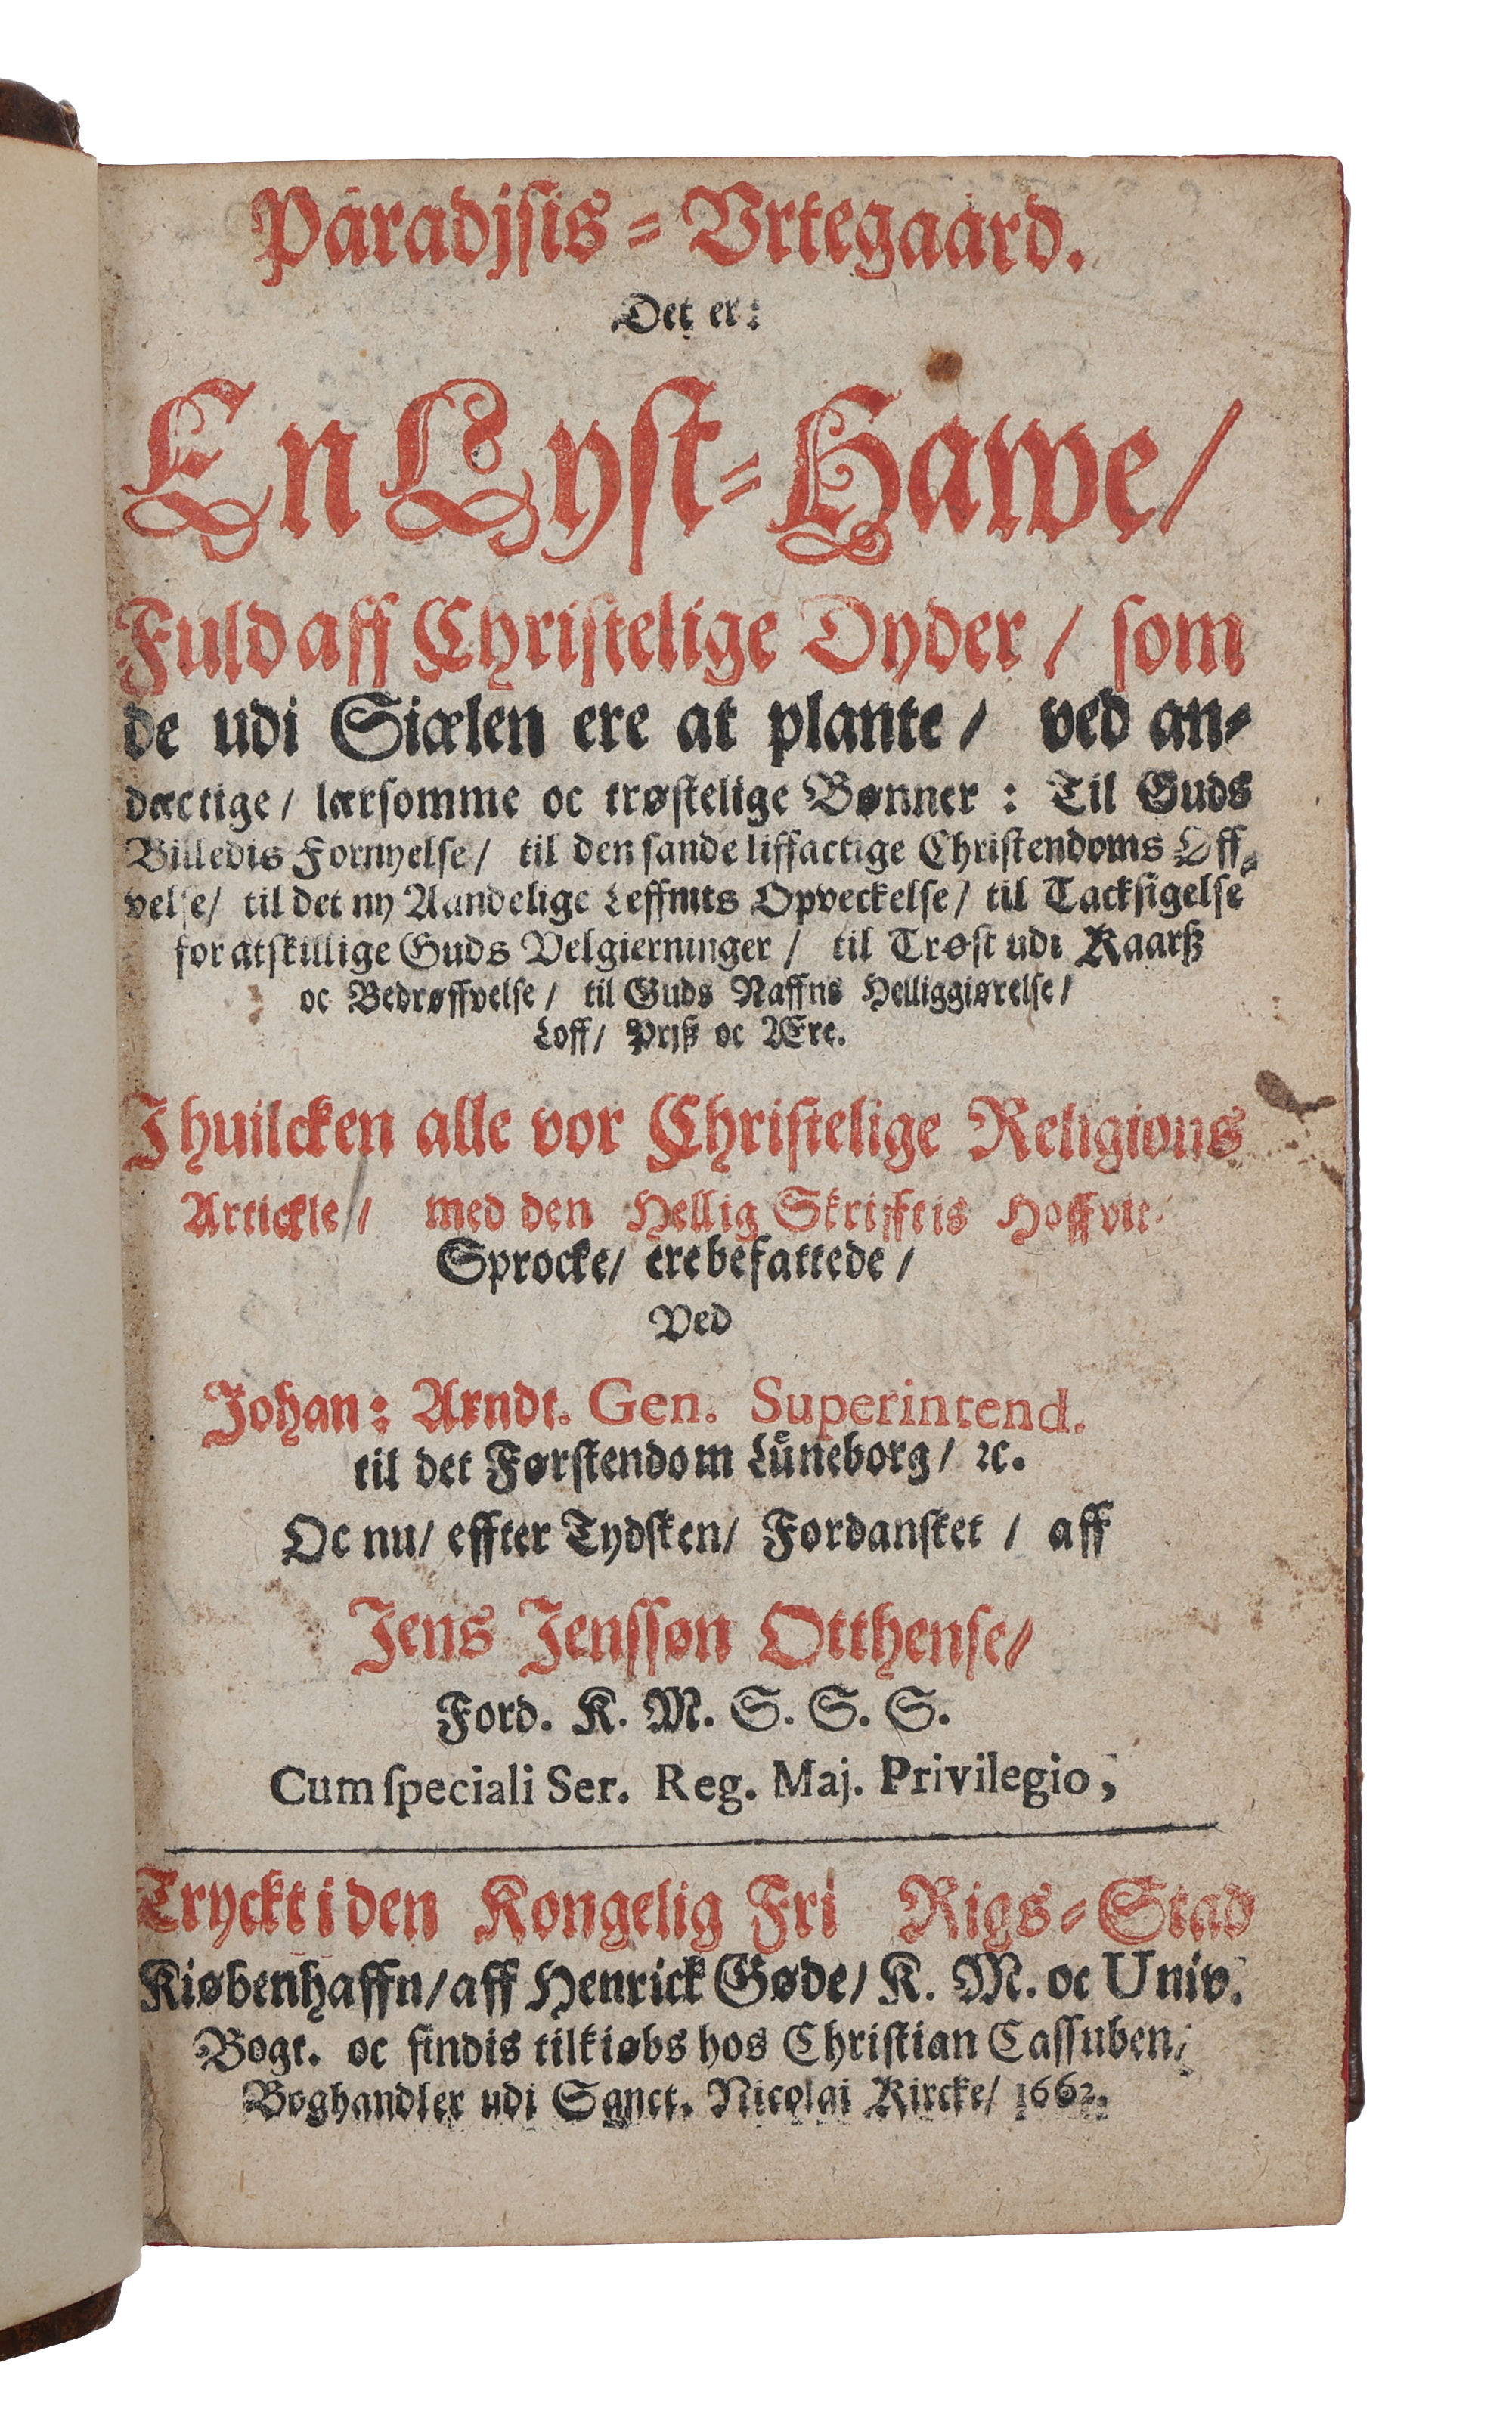 Paradjsis = Vrtegaard.
Det er:
En Lyst = Hawe/
Fuld aff Christelige Dyder / som
de udi Siælen ere at plante / ved an=
dæctige / lærsomme oc trøstelige Bønner : Til Guds
Billedis Fornyelse / til den sande liffactige Christendoms Øff=
velse / til det ny Aandelige Leffnits Opveckelse / til Tacksigelse
for atskillige Guds Velgierninger / til Trøst udi Kaarß
oc Bedrøffvelse / til Guds Naffns Helliggiørelse /
Loff / Prjß oc Ære.
J huilcken alle vor Christelige Religions
Artickle / med den Hellig Skrifftis Hoffvit=
Sprocke / ere befattede /
Ved
Johan: Arndt. Gen. Superintend.
til det Førstendom Lüneborg / ꝛc.
Oc nu / effter Tydsken / Fordansket / aff
Jens Jenssøn Otthense /
Ford. K. M. S. S. S.
Cum speciali Ser. Reg. Maj. Privilegio,
Tryckt i den Kongelig Fri Rigs = Stad
Kiøbenhaffn / aff Henrick Gøde / K. M. oc Univ.
Bogt. oc findis til kiøbs hos Christian Cassuben /
Boghandler udi Sanct. Nicolai Kircke /